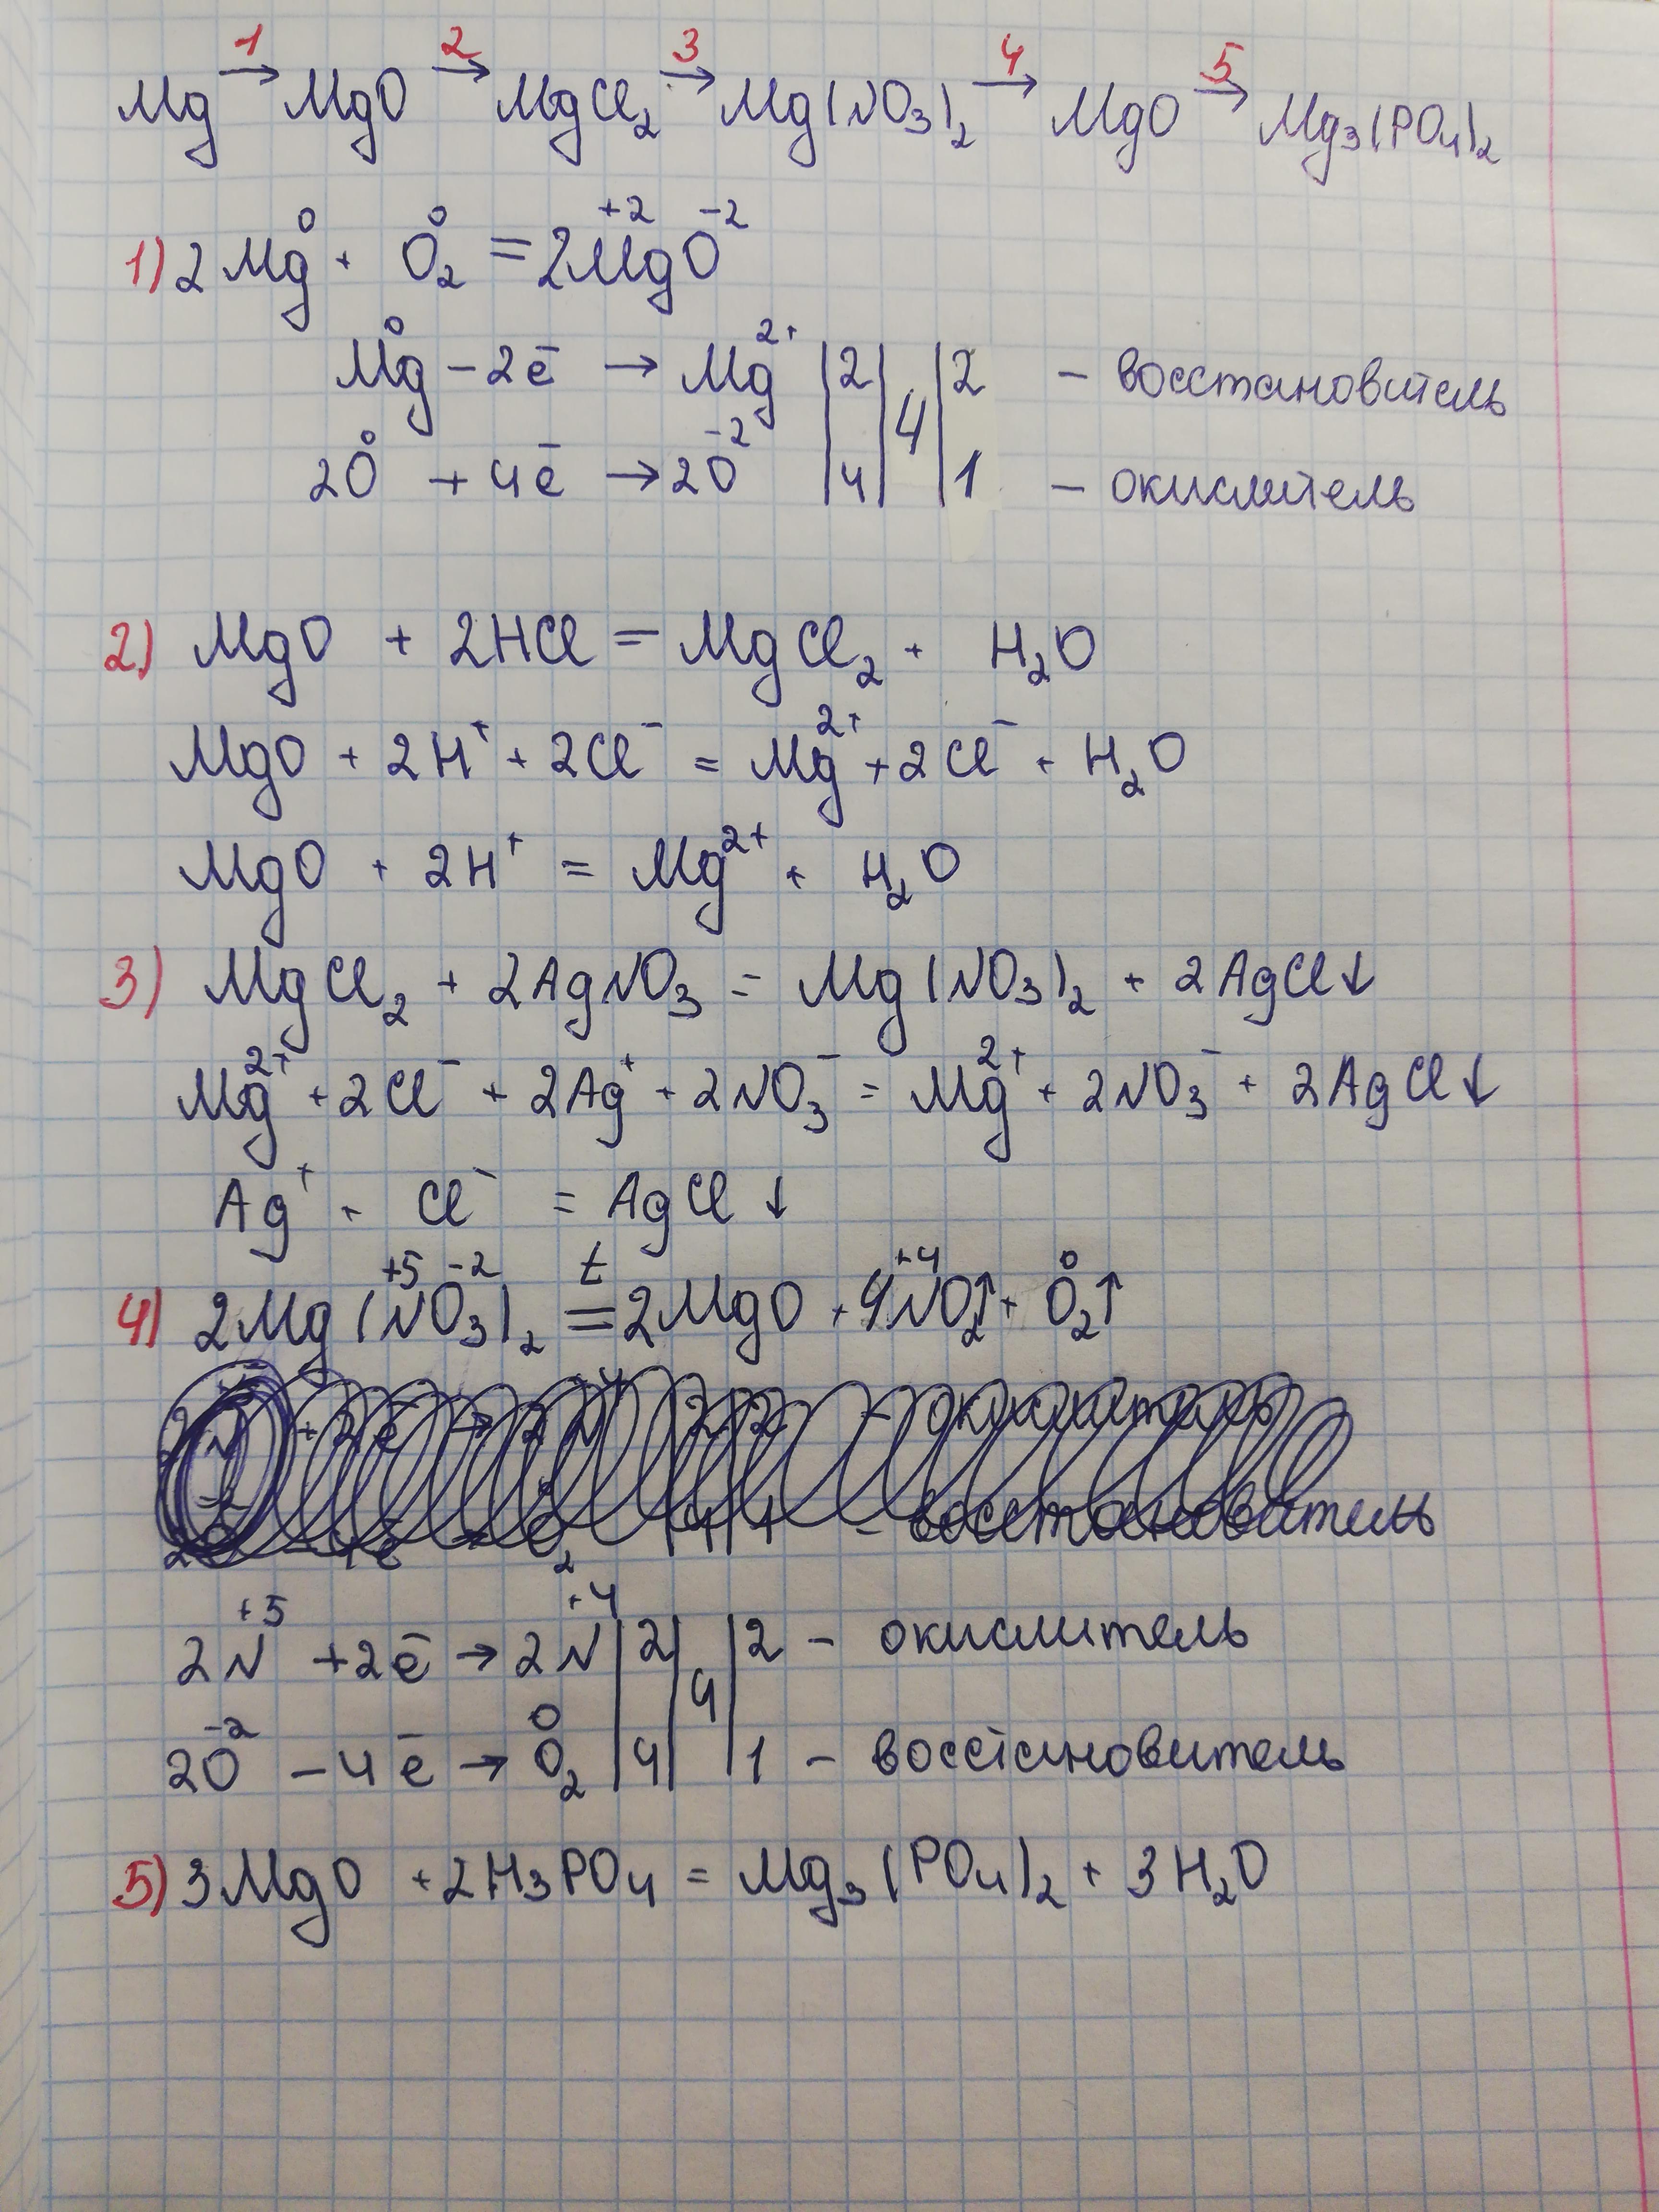 1 2 3 4 5
Mg → MgO → MgCl₂ → Mg(NO₃)₂ → MgO → Mg₃(PO₄)₂
0 0 +2 -2
1) 2Mg + O₂ = 2MgO
Mg⁰ - 2ē → Mg²⁺ | 2 | 4 | 2 - восстановитель
2O⁰ + 4ē → 2O⁻² | 4 | | 1 - окислитель
2) MgO + 2HCl = MgCl₂ + H₂O
MgO + 2H⁺ + 2Cl⁻ = Mg²⁺ + 2Cl⁻ + H₂O
MgO + 2H⁺ = Mg²⁺ + H₂O
3) MgCl₂ + 2AgNO₃ = Mg(NO₃)₂ + 2AgCl↓
Mg²⁺ + 2Cl⁻ + 2Ag⁺ + 2NO₃⁻ = Mg²⁺ + 2NO₃⁻ + 2AgCl↓
Ag⁺ + Cl⁻ = AgCl↓
+5 -2 t +4 0
4) 2Mg(NO₃)₂ = 2MgO + 4NO₂↑ + O₂↑
окислитель
- восстановитель
2N⁺⁵ + 2ē → 2N⁺⁴ | 2 | 4 | 2 - окислитель
2O⁻² - 4ē → O₂⁰ | 4 | | 1 - восстановитель
5) 3MgO + 2H₃PO₄ = Mg₃(PO₄)₂ + 3H₂O